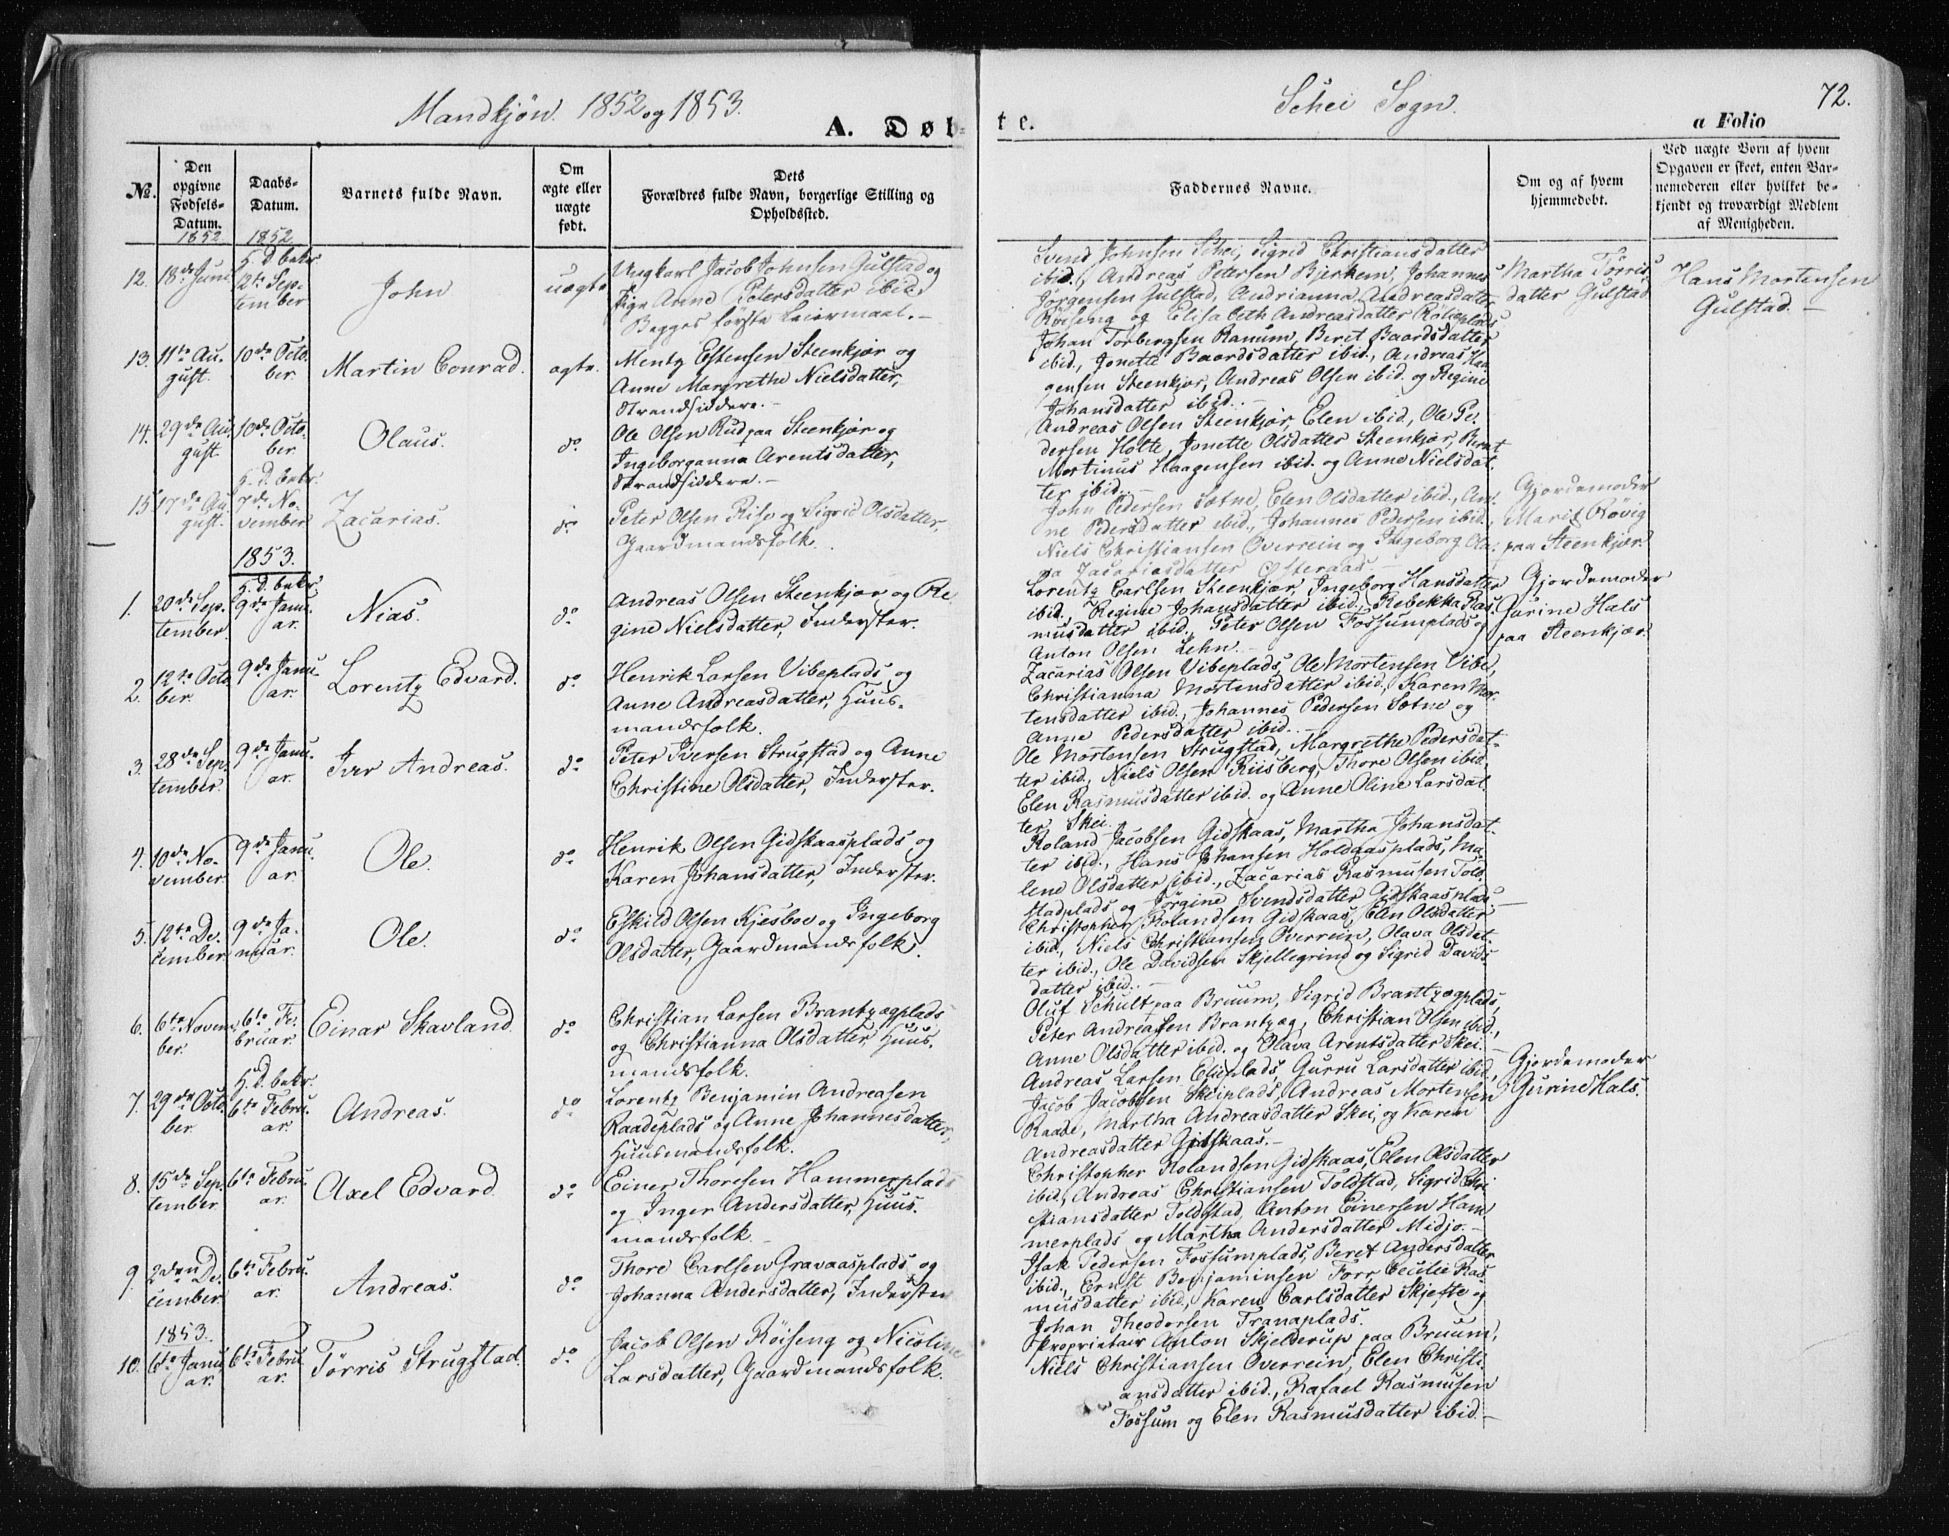 Mandkjøn. 1852 og 1853.
A. Døb-
te.
Schei Sogn.
72.
a Folio
No.
Den opgivne Fødsels-Datum.
Daabs-Datum.
Barnets fulde Navn.
Om ægte eller uægte født.
Dets Forældres fulde Navn, borgerlige Stilling og Opholdssted.
Faddernes Navne.
Om og af hvem hjemmedøbt.
Ved uægte Børn af hvem Opgaven er skeet, enten Barnemoderen eller hvilket bekjendt og troværdigt Medlem af Menigheden.
1852
1852
12.
18de Juni
H. D. bekr.
12te Sep-
tember
John
uægte
Ungkarl Jacob Johnsen Gulstad og
Pige Anne Petersdatter ibid.
Begges første Leiermaal.-
Svend Johnsen Schei, Sigrid Christiansdatter
ibid., Andreas Petersen Bjerkem, Johannes
Jørgensen Gulstad, Andrianna Andreasdatter
Røiseng og Elisabeth Andreasdatter
Martha Tørris-
datter Gulstad
Hans Mortensen
Gulstad.-
13.
11te Au-
gust.
10de Octo-
ber.
Martin Conrad.
ægte.
Mentz Estensen Steenkjær og
Anne Margrethe Nielsdatter,
Strandsiddere.-
Johan Torbergsen Ranum, Beret Baardsdatter
ibid., Jonette Baardsdatter ibid., Andreas Haa-
gensen Steenkjær, Andreas Olsen ibid. og Regine
Johansdatter ibid.-
14.
29de Au-
gust.
10de Octo-
ber
Olaus.
do
Ole Olsen Rud paa Steenkjær og
Ingeborganna Arentsdatter,
Strandsiddere.-
Andreas Olsen Steenkjær, Elen ibid., Ole Pe-
dersen Holte, Jonette Olsdatter Steenkjær, Bernt
Martinus Haagensen ibid. og Anne Nielsdat-
ter ibid.-
15.
17de Au-
gust.
H. D. bekr.
7de No-
vember
Zacarias.
do
Peter Olsen Risø og Sigrid Olsdatter,
Gaardmandsfolk.
John Pedersen Sætne, Elen Olsdatter ibid., An-
ne Pedersdatter ibid., Johannes Pedersen ibid.,
Niels Christiansen Overrein og Ingeborg Ola-
va Zacariasdatter
Gjordemoder
Marit Røvig
paa Steenkjær.
1853.
1.
20de Sep-
tember.
H. D. bekr.
9de Janu-
ar.
Nias.
do
Andreas Olsen Steenkjær og Re-
gine Nielsdatter, Inderster.
Lorentz Carlsen Steenkjær, Ingeborg Hansdatter
ibid., Regine Johansdatter ibid., Rebekka Ras-
musdatter ibid., Peter Olsen Fossumplads og
Anton Olsen Lehn.-
Gjordemoder
Gurine Hals
paa Steenkjær.
2.
12te Octo-
ber.
9de Janu-
ar.
Lorentz Edvard.
do
Henrik Larsen Vibeplads og
Anne Andreasdatter, Huus-
mandsfolk.
Zacarias Olsen Vibeplads, Ole Mortensen Vibe,
Christianna Mortensdatter ibid., Karen Mor-
tensdatter ibid., Johannes Pedersen Sætne og
Anne Pedersdatter ibid.
3.
28de Sep-
tember.
9de Janu-
ar.
Iver Andreas.
do
Peter Iversen Strugstad og Anne
Christine Olsdatter, Inderster.
Ole Mortensen Strugstad, Margrethe Pedersdat-
ter ibid., Niels Olsen Riisberg, Thore Olsen ibid.
Elen Rasmusdatter ibid. og Anne Oline Larsdat-
ter Skei.
4.
10de No-
vember
9de Janu-
ar
Ole.
do
Henrik Olsen Gidskaasplads og
Karen Johansdatter, Inderster.
Roland Jacobsen Gidskaas, Martha Johansdat-
ter ibid., Hans Johansen Holdaasplads, Ma-
lene Olsdatter ibid., Zacarias Rasmusen Told-
stadplads og Jørgine Svendsdatter Gidskaasplads.-
5.
12te De-
cember
9de Ja-
nuar.
Ole.
do
Eskild Olsen Kjesbov og Ingeborg
Olsdatter, Gaardmandsfolk.
Christopher Rolandsen Gidskaas, Elen Olsdatter
ibid., Niels Christiansen Overrein, Olava Olsdat-
ter ibid., Ole Davidsen Skjellegrind og Sigrid Davids-
datter ibid.-
6.
6te Novem-
ber.
6te Fe-
bruar.
Einar Skavland
do
Christian Larsen Brantzægplads
og Christianna Olsdatter, Huus-
mandsfolk.
Oluf Schult paa Bruum, Sigrid Brantzægplads,
Peter Andreasen Brantzæg, Christian Olsen ibid.,
Anne Olsdatter ibid. og Olava Arentsdatter Skei.-
7.
29de Octo-
ber.
H. D. bekr.
6te Febru-
ar.
Andreas.
do
Lorentz Benjamin Andreasen
Raadeplads og Anne Johannesdatter,
Huusmandsfolk.
Andreas Larsen Elieplads, Gurru Larsdatter ibid.,
Jacob Jacobsen Skeiplads, Andreas Mortensen
Raade, Martha Andreasdatter Skei, og Karen
Andreasdatter Gidskaas.-
Gjordemoder
Gurine Hals.
8.
15de Sep-
tember
6te Febru-
ar.
Axel Edvard
do
Einer Thoresen Hammerplads
og Inger Andersdatter, Huus-
mandsfolk.
Christopher Rolandsen Gidskaas, Elen Olsdatter
ibid., Andreas Christiansen Toldstad, Sigrid Chri-
stiansdatter Toldstad, Anton Einersen Ham-
merplads og Martha Andersdatter Midjo.-
9.
2den De-
cember
6te Febru-
ar.
Andreas.
do
Thore Carlsen Gravaasplads og
Johanna Andersdatter, Inderster
Isak Pedersen Fossumplads, Beret Andersdatter
ibid., Ernst Benjaminsen Forr, Cecilie Ras-
musdatter ibid., Karen Carlsdatter Skjefte og
Johan Theodorsen Tranaplads.
1853.
10.
6te Janu-
ar.
6te Febru-
ar.
Tørris Strugstad.
do
Jacob Olsen Røiseng og Nicoline
Larsdatter, Gaardmandsfolk.
Proprietair Anton Skjelderup paa Bruum,
Niels Christiansen Overrein, Elen Christi-
ansdatter ibid., Rafael Rasmusen
Fossum og Elen Rasmusdatter ibid.-